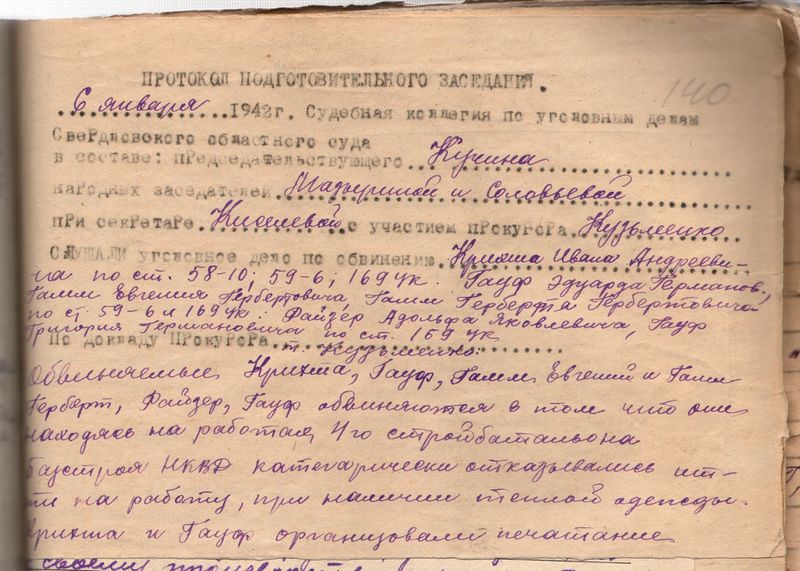 140
ПРОТОКОЛ ПОДГОТОВИТЕЛЬНОГО ЗАСЕДАНИЯ.
6 января 1942г. Судебная коллегия по уголовным делам
Свердловского областного суда
в составе: председательствующего Кучина
народных заседателей Мазуриной и Соловьевой
при секретаре Киселевой с участием прокурора Кузьменко
СЛУШАЛИ уголовное дело по обвинению Крихта Ивана Андрееви-
ча по ст. 58-10; 59-6; 169 ук. Гауф Эдуарда Германов.,
Гамм Евгения Гербертовича, Гамм Герберта Гербертовича
по ст 59-6 и 169 ук. Файзер Адольфа Яковлевича, Гауф
Григория Германовича по ст. 169 ук
По докладу прокурора т. Кузьменко
Обвиняемые Крихта, Гауф, Гамм Евгений и Гамм
Герберт, Файзер, Гауф обвиняются в том что они
находясь на работах 4го стройбатальона
Базстроя НКВД категарически отказывались ит-
ти на работу, при наличии теплой одежды.
Крихта и Гауф организовали печатание